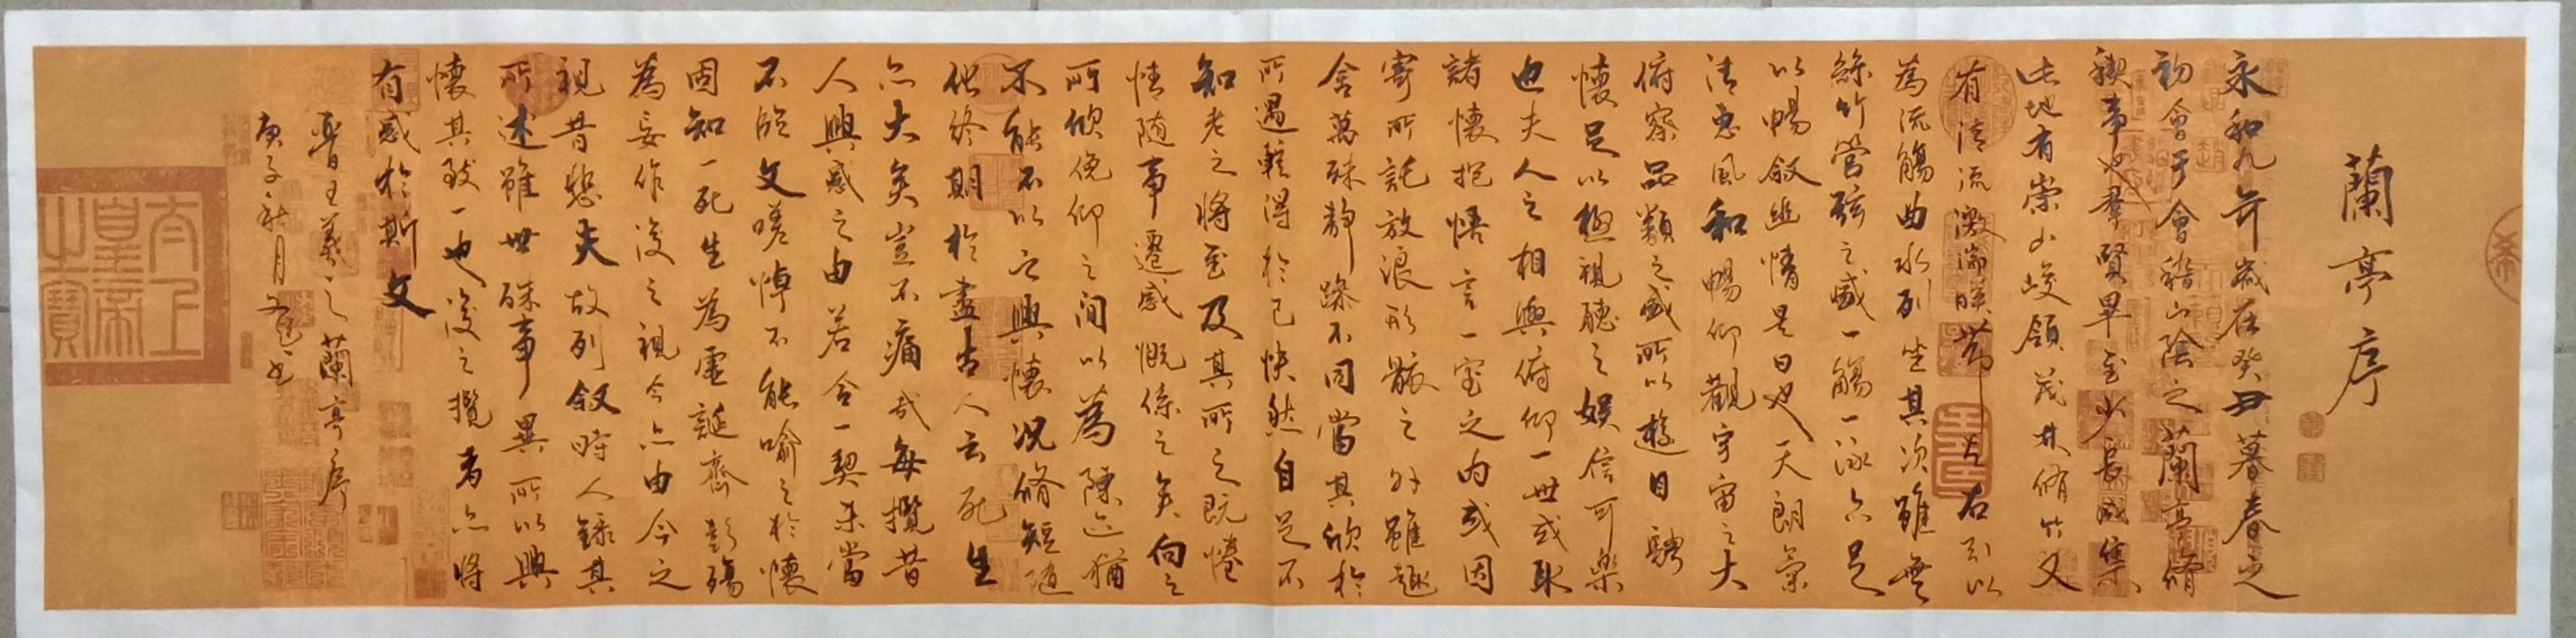 蘭亭序
永和九年歲在癸丑暮春之
初會于會稽山陰之蘭亭脩
禊事也羣賢畢至少長咸集
此地有崇山峻領茂林脩竹又
有清流激湍暎帶左右引以
為流觴曲水列坐其次雖無
絲竹管弦之盛一觴一詠亦足
以暢敘幽情是日也天朗氣
清惠風和暢仰觀宇宙之大
俯察品類之盛所以遊目騁
懷足以極視聽之娛信可樂
也夫人之相與俯仰一世或取
諸懷抱悟言一室之内或因
寄所託放浪形骸之外雖趣
舍萬殊靜躁不同當其欣於
所遇輒得於己快然自足不
知老之將至及其所之既惓
情隨事遷感慨係之矣向之
所欣俛仰之間以為陳迹猶
不能不以之興懷況脩短隨
化終期於盡古人云死生
亦大矣豈不痛哉每攬昔
人興感之由若合一契未嘗
不臨文嗟悼不能喻之於懷
固知一死生為虛誕齊彭殤
為妄作後之視今亦由今之
視昔悲夫故列敘時人錄其
所述雖世殊事異所以興
懷其致一也後之攬者亦將
有感於斯文
晉王羲之蘭亭序
庚子秋月書
太上皇帝之寶